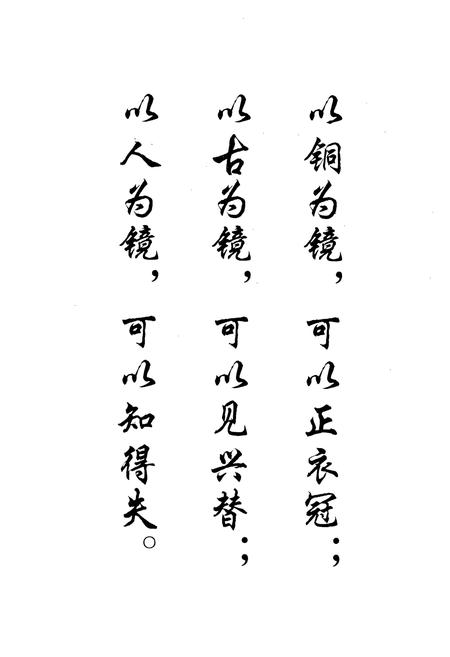 以铜为镜，可以正衣冠；
以古为镜，可以见兴替；
以人为镜，可以知得失。